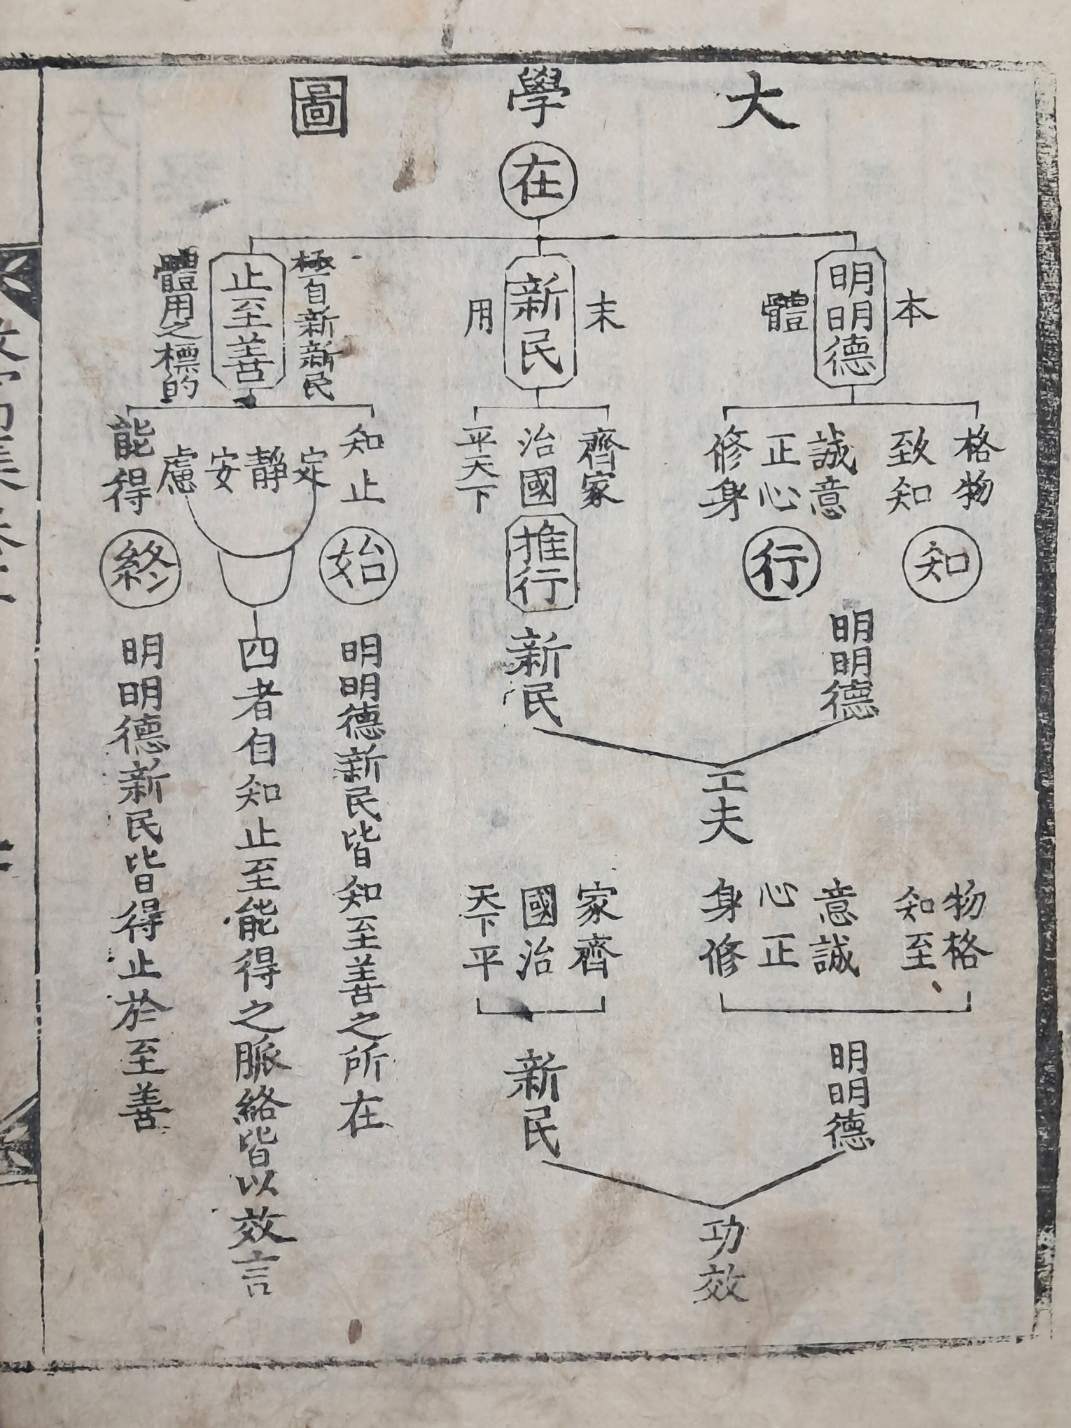 大學圖
在
本
明明德
體
格物
致知
誠意
正心
修身
知
行
明明德
末
新民
用
齊家
治國
平天下
推行
新民
工夫
物格
知至
意誠
心正
身修
明明德
家齊
國治
天下平
新民
功效
極自新新民
止至善
體用之標的
知止
定
靜
安
慮
能得
始
終
明明德新民皆知至善之所在
四者自知止至能得之脈絡皆以效言
明明德新民皆得止於至善